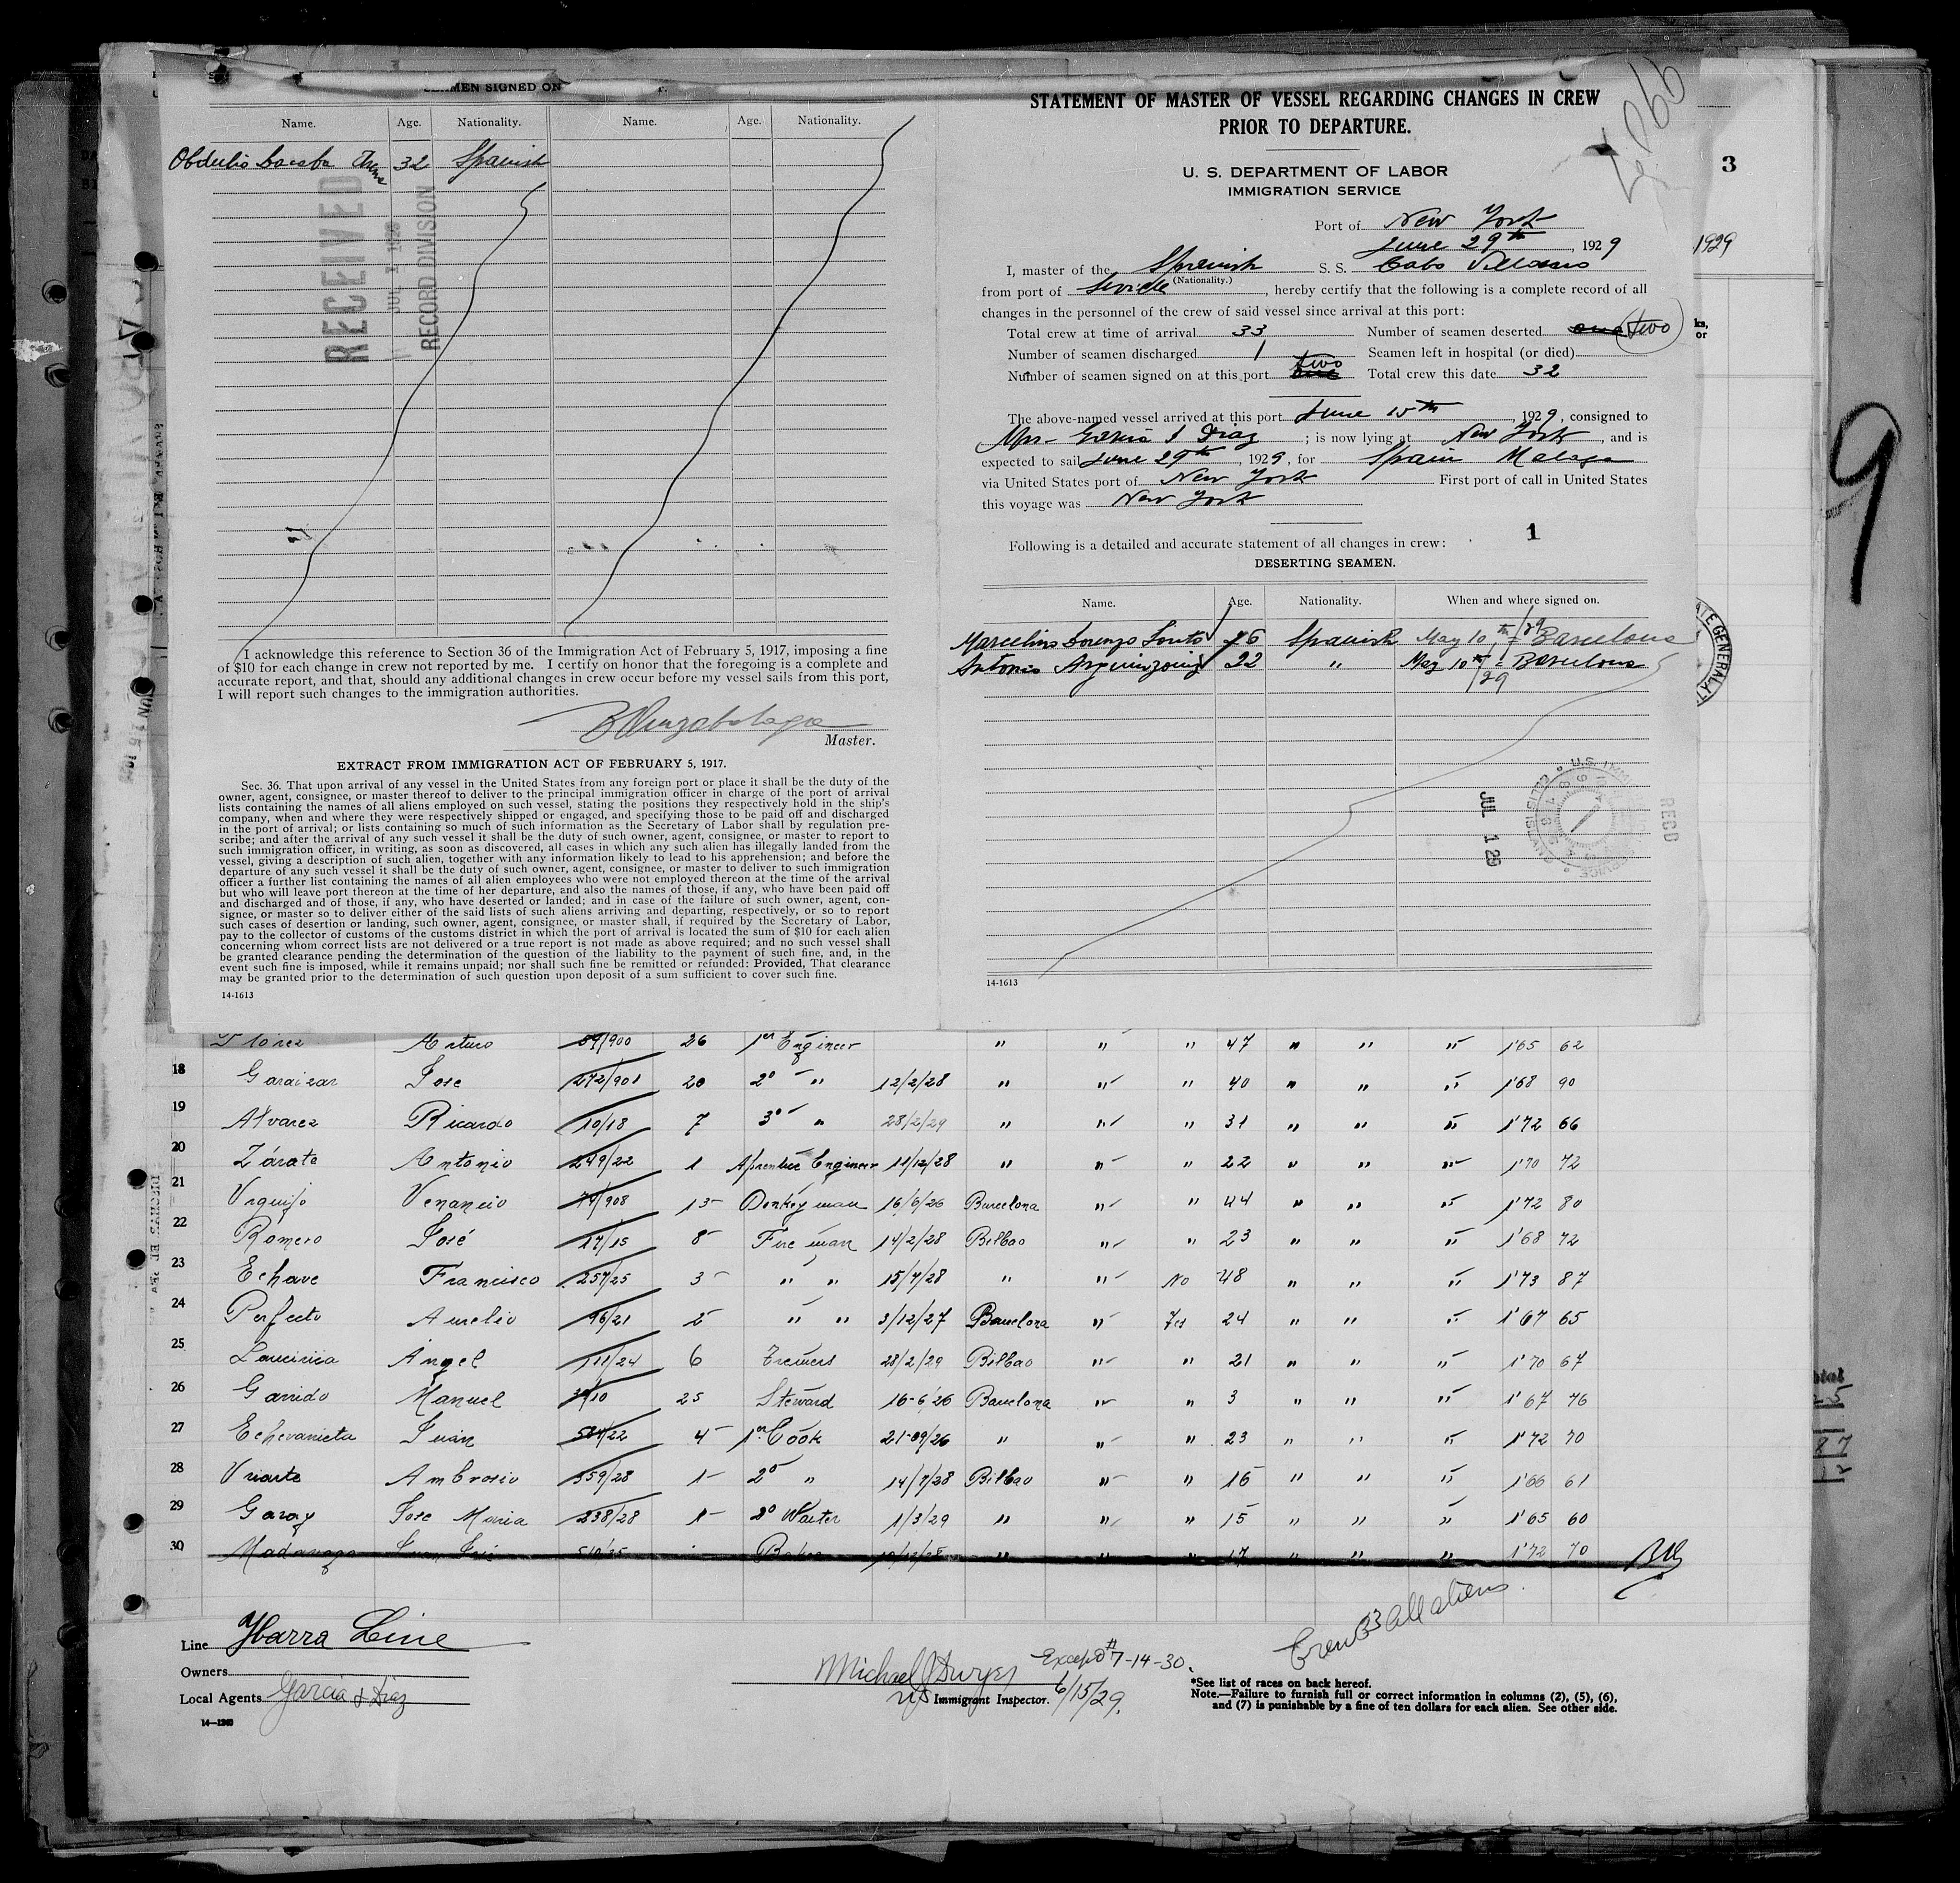 SEAMEN SIGNED ON
Name. Age. Nationality. Name. Age. Nationality.
Obdulio 32 Spanish
RECEIVED
JUL 1 1929
RECORD DIVISION
I acknowledge this reference to Section 36 of the Immigration Act of February 5, 1917, imposing a fine
of $10 for each change in crew not reported by me. I certify on honor that the foregoing is a complete and
accurate report, and that, should any additional changes in crew occur before my vessel sails from this port,
I will report such changes to the immigration authorities.
Master.
EXTRACT FROM IMMIGRATION ACT OF FEBRUARY 5, 1917.
Sec. 36. That upon arrival of any vessel in the United States from any foreign port or place it shall be the duty of the
owner, agent, consignee, or master thereof to deliver to the principal immigration officer in charge of the port of arrival
lists containing the names of all aliens employed on such vessel, stating the positions they respectively hold in the ship's
company, when and where they were respectively shipped or engaged, and specifying those to be paid off and discharged
in the port of arrival; or lists containing so much of such information as the Secretary of Labor shall by regulation pre-
scribe; and after the arrival of any such vessel it shall be the duty of such owner, agent, consignee, or master to report to
such immigration officer, in writing, as soon as discovered, all cases in which any such alien has illegally landed from the
vessel, giving a description of such alien, together with any information likely to lead to his apprehension; and before the
departure of any such vessel it shall be the duty of such owner, agent, consignee, or master to deliver to such immigration
officer a further list containing the names of all alien employees who were not employed thereon at the time of the arrival
but who will leave port thereon at the time of her departure, and also the names of those, if any, who have been paid off
and discharged and of those, if any, who have deserted or landed; and in case of the failure of such owner, agent, con-
signee, or master so to deliver either of the said lists of such aliens arriving and departing, respectively, or so to report
such cases of desertion or landing, such owner, agent, consignee, or master shall, if required by the Secretary of Labor,
pay to the collector of customs of the customs district in which the port of arrival is located the sum of $10 for each alien
concerning whom correct lists are not delivered or a true report is not made as above required; and no such vessel shall
be granted clearance pending the determination of the question of the liability to the payment of such fine, and, in the
event such fine is imposed, while it remains unpaid; nor shall such fine be remitted or refunded: Provided, That clearance
may be granted prior to the determination of such question upon deposit of a sum sufficient to cover such fine.
14-1613
STATEMENT OF MASTER OF VESSEL REGARDING CHANGES IN CREW
PRIOR TO DEPARTURE.
U. S. DEPARTMENT OF LABOR
IMMIGRATION SERVICE
Port of New York
June 29th, 1929
I, master of the Spanish S. S. Cabo Villano
(Nationality.)
from port of Seville, hereby certify that the following is a complete record of all
changes in the personnel of the crew of said vessel since arrival at this port:
Total crew at time of arrival 33 Number of seamen deserted one two
Number of seamen discharged 1 Seamen left in hospital (or died)
Number of seamen signed on at this port two Total crew this date 32
The above-named vessel arrived at this port June 15th, 1929, consigned to
Garcia & Diaz; is now lying at New York, and is
expected to sail June 29th, 1929, for Spain Malaga
via United States port of New York First port of call in United States
this voyage was New York
Following is a detailed and accurate statement of all changes in crew: 1
DESERTING SEAMEN.
Name. Age. Nationality. When and where signed on.
Marcelino Lorenzo Spanish May 10th /29 Barcelona
Antonio 22 " May 10th /29 Barcelona
JUL 1 29
RECD
14-1613
3
1929
9
Florez Arturo 59/900 26 1er Engineer " " " 47 " " " 1'65 62
18 Garaizar Jose 272/901 20 2o " 12/2/28 " " " 40 " " " 1'68 90
19 Alvarez Ricardo 10/18 7 3o " 28/2/29 " " " 31 " " " 1'72 66
20 Zárate Antonio 249/22 1 Aprentice Engineer 11/12/28 " " " 22 " " " 1'70 72
21 Urquijo Venancio 74/908 15 Donkey man 16/6/26 Barcelona " " 44 " " " 1'72 80
22 Romero José 17/15 8 Fire man 14/2/28 Bilbao " " 23 " " " 1'68 72
23 Echave Francisco 257/25 3 " " 15/7/28 " " No 48 " " " 1'73 87
24 Perfecto Aurelio 96/21 2 " " 3/12/27 Barcelona " Yes 24 " " " 1'67 65
25 Angel 111/24 6 28/2/29 Bilbao " " 21 " " " 1'70 67
26 Garrido Manuel 25 Steward 16-6'26 Barcelona " " 3 " " " 1'67 76
27 Echevarrieta Juan 4 1er Cook 21-09/26 " " " 23 " " " 1'72 70
28 Uriarte Ambrosio 359/28 1 2o " 14/7/28 Bilbao " " 16 " " " 1'66 61
29 Garay Jose Maria 238/28 1 2o Waiter 1/3/29 " " " 15 " " " 1'65 60
30 " " " 17 " " " 1'72 70
Line Ybarra Line
Owners
Local Agents Garcia & Diaz
14—1240
Michael J Dwyer Except # 7-14-30.
US Immigrant Inspector. 6/15/29.
Crew 33 All aliens
*See list of races on back hereof.
Note.—Failure to furnish full or correct information in columns (2), (5), (6),
and (7) is punishable by a fine of ten dollars for each alien. See other side.